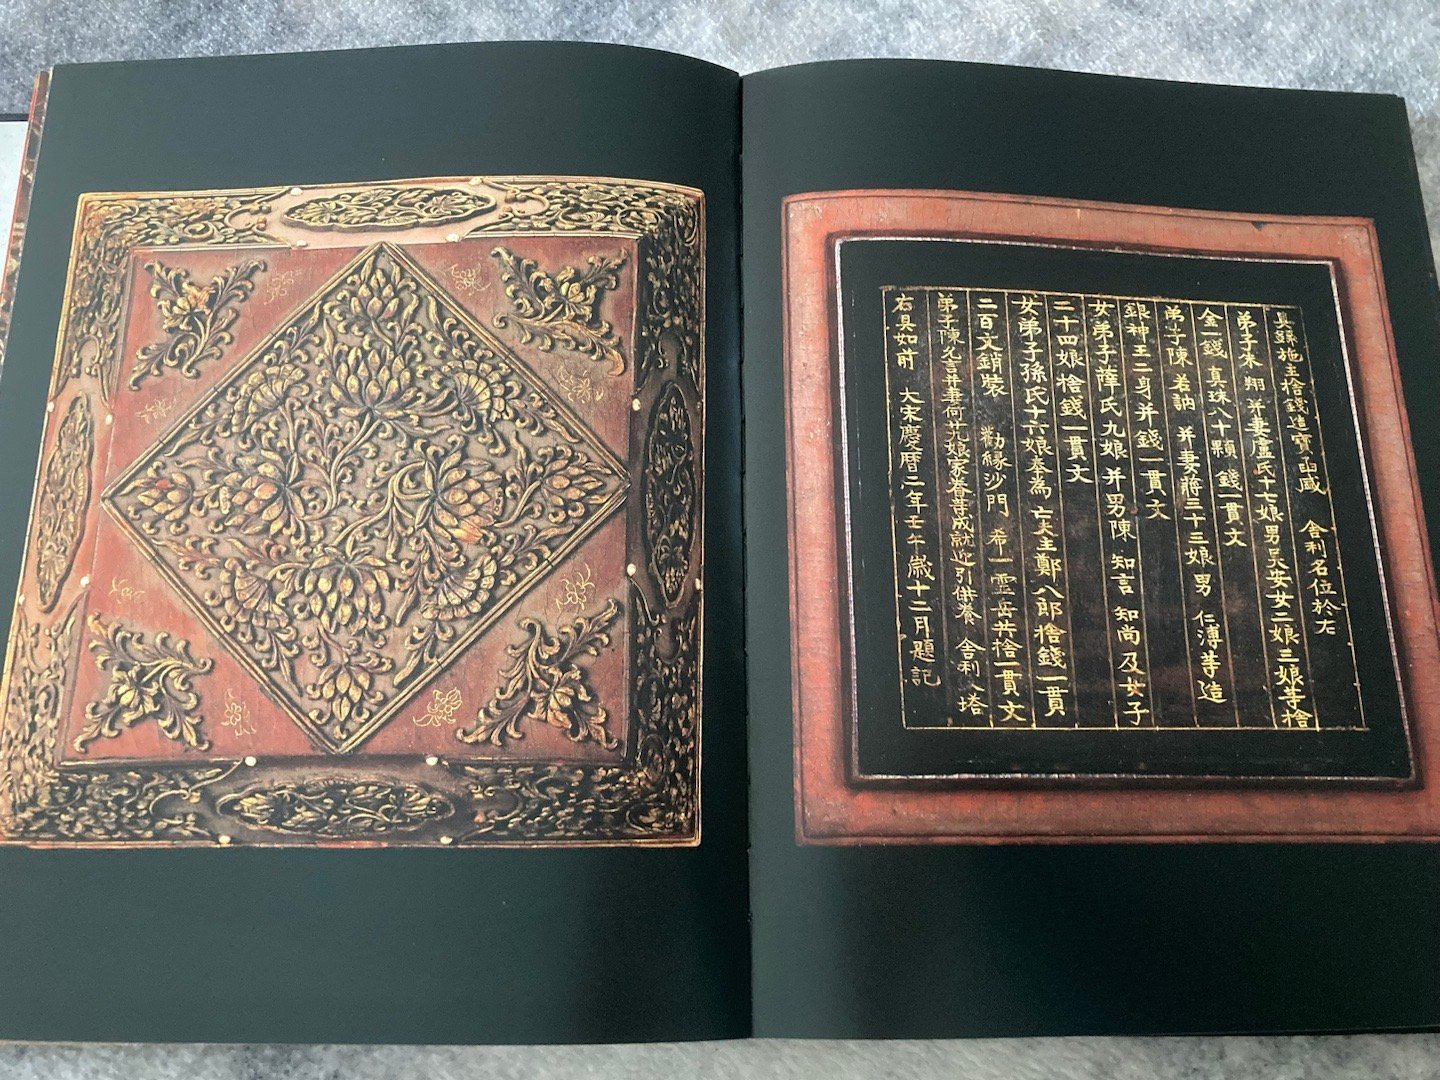 具録施主捨錢造寶函盛　舍利名位於左
弟子朱　翔并妻盧氏十七娘男吴安女二娘三娘等捨
金一錢　真珠八十顆　錢一貫文
弟子陳　若訥　并妻蔣三十三娘　男　仁溥等造
銀神王二身并錢一貫文
女弟子薛氏九娘　并男陳　知言　知尚及女子
二十四娘捨錢一貫文
女弟子孫氏十六娘奉為　亡夫主鄭八郎捨錢一貫
二百文銷裝　　勸緣沙門　希一　靈岳共捨一貫文
弟子陳允言并妻何廿九娘家眷等成就迎引供養　舍利入塔
右具如前　大宋慶曆二年壬午歲十二月　題記